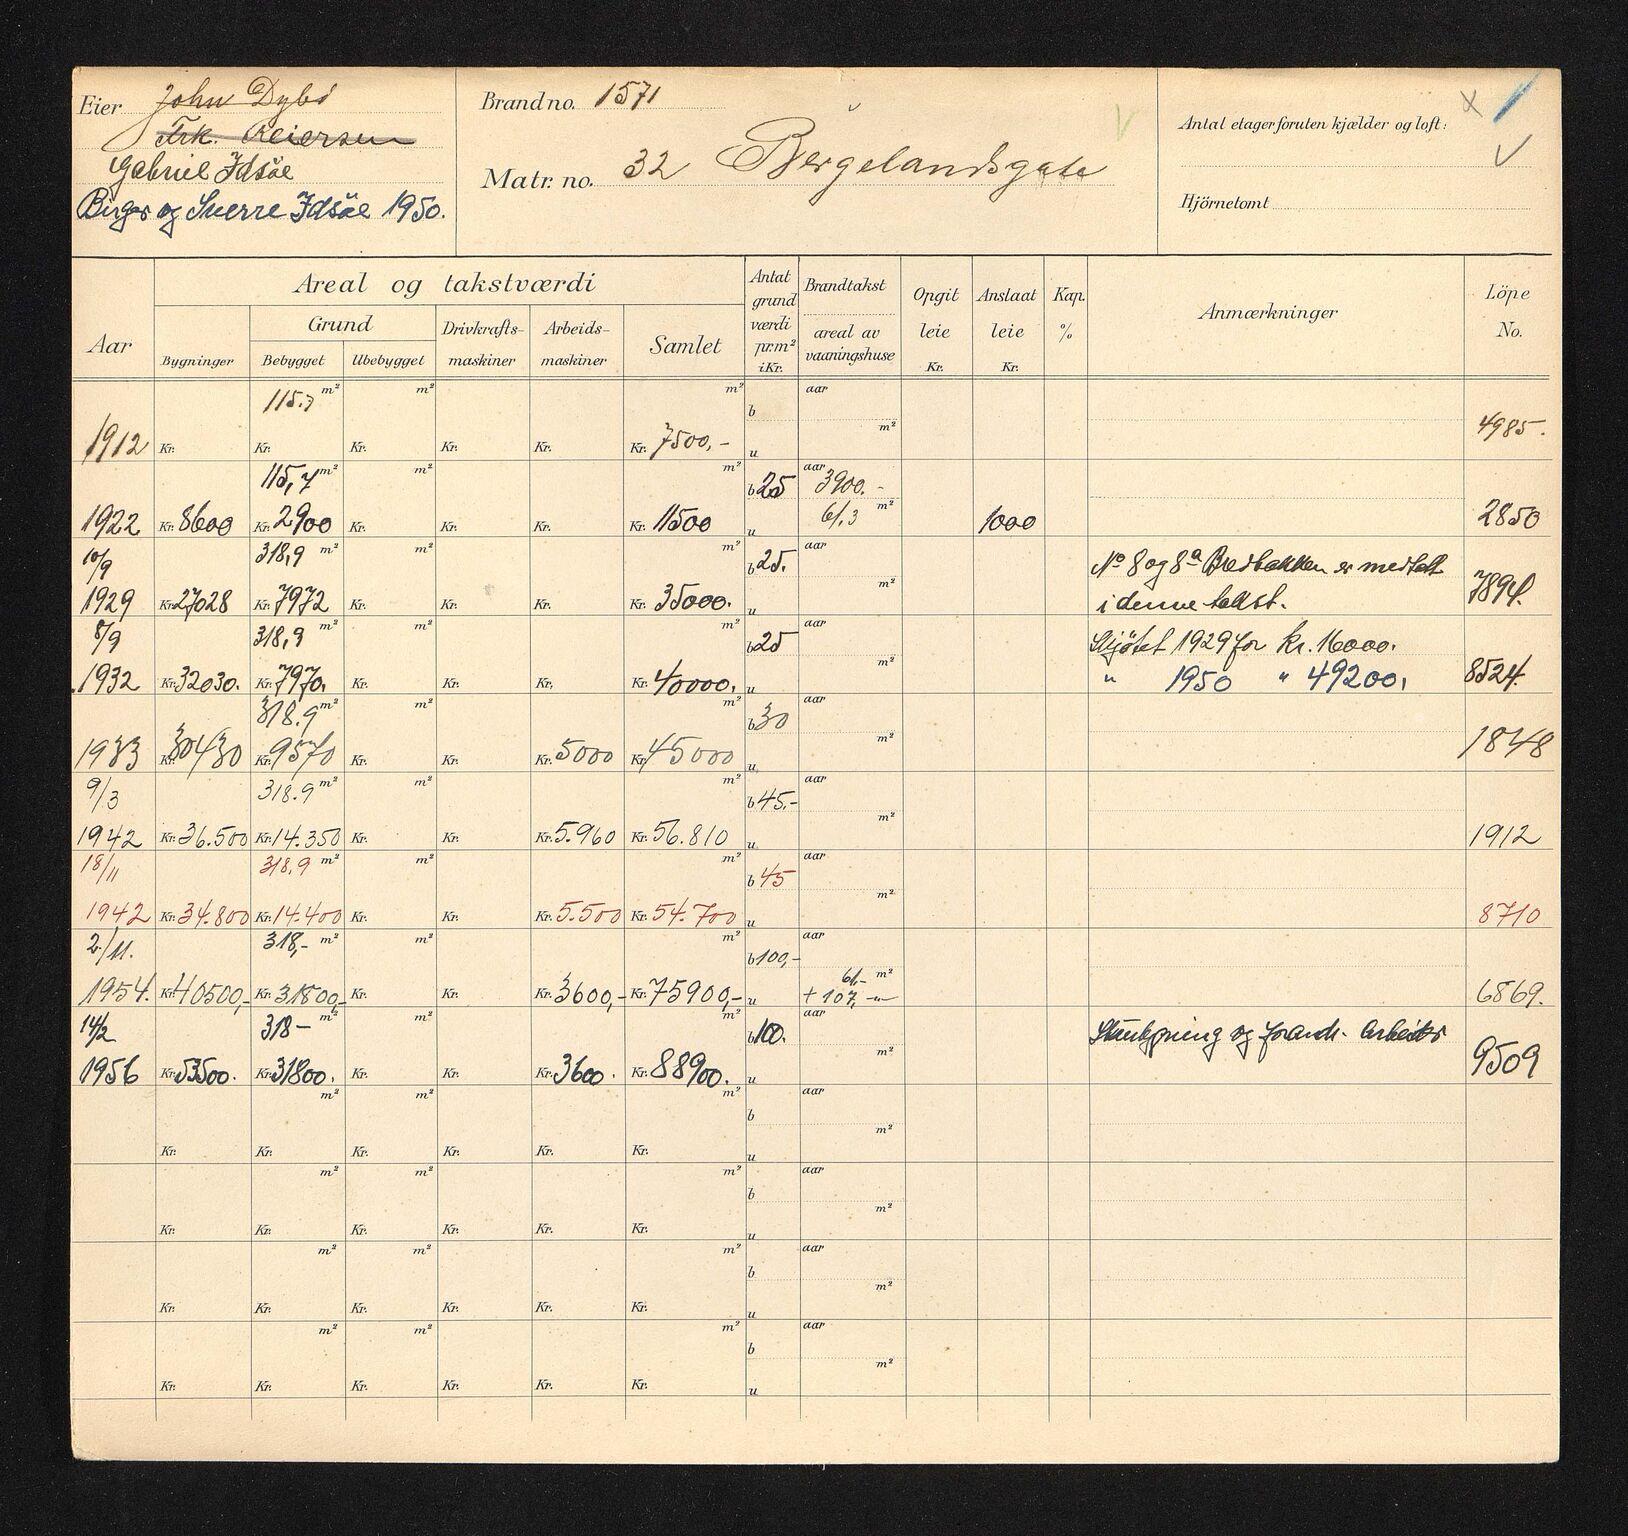 Eier John Dybö
Frk. Reiersen
Gabriel Idsöe
Birger og Sverre Idsöe 1950.
Brand no. 1571
Matr. no. 32 Bergelandsgate
Antal etager foruten kjælder og loft:
Hjörnetomt
Aar
Areal og takstværdi
Bygninger
Grund
Bebygget Ubebygget
Drivkrafts-maskiner
Arbeids-maskiner
Samlet
Antat grund værdi pr. m² i Kr.
Brandtakst
areal av vaaningshuse
Opgit leie Kr.
Anslaat leie Kr.
Kap. %
Anmærkninger
Löpe No.
115.7 m² m² m² b aar
1912 Kr. Kr. Kr. Kr. Kr. Kr. 7500,- u m² 4985.
115,7 m² m² m² b 25 aar 3900.-
1922 Kr. 8600 Kr. 2900 Kr. Kr. Kr. Kr. 11500 u 61,3 m² 1000 2850
10/9 318,9 m² m² m² b 25. aar No 8 og 8a Bredbakken er medtatt
1929 Kr. 27028 Kr. 7972 Kr. Kr. Kr. Kr. 35000. u m² i denne takst. 7894.
8/9 318,9 m² m² m² b 25 aar Skjøtet 1929 for kr. 16000.
1932 Kr. 32030. Kr. 7970. Kr. Kr. Kr. Kr. 40000. u m² " 1950 " 49200. 8524.
318.9 m² m² m² b 30 aar
1933 Kr. 30430 Kr. 9570 Kr. Kr. Kr. 5000 Kr. 45000 u m² 1848
9/3 318.9 m² m² m² b 45.- aar
1942 Kr. 36.500 Kr. 14.350 Kr. Kr. Kr. 5.960 Kr. 56.810 u m² 1912
18/11 318,9 m² m² m² b 45 aar
1942 Kr. 34.800 Kr. 14.400 Kr. Kr. Kr. 5.500 Kr. 54.700 u m² 8710
2/11. 318,- m² m² m² b 100,- aar
1954. Kr. 40500,- Kr. 31800,- Kr. Kr. Kr. 3600,- Kr. 75900,- u 61,- m² + 107,- " 6869.
14/2 318- m² m² m² b 100. aar og forandr. arbeider
1956 Kr. 53500. Kr. 31800. Kr. Kr. Kr. 3600. Kr. 88900. u m² 9509
m² m² m² b aar
Kr. Kr. Kr. Kr. Kr. Kr. u m²
m² m² m² b aar
Kr. Kr. Kr. Kr. Kr. Kr. u m²
m² m² m² b aar
Kr. Kr. Kr. Kr. Kr. Kr. u m²
m² m² m² b aar
Kr. Kr. Kr. Kr. Kr. Kr. u m²